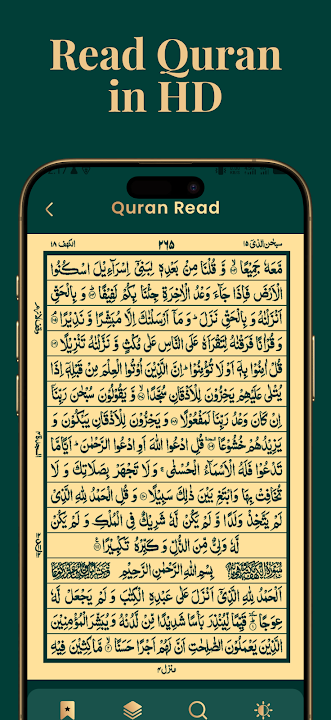 Read Quran
in HD
Quran Read
سبحن الذی ۱۵
۲۶۵
الكهف ۱۸
مَّعَهٗ جَمِیْعًا ۙ وَّ قُلْنَا مِنْۢ بَعْدِهٖ لِبَنِیْۤ اِسْرَآءِیْلَ اسْكُنُوا
الْاَرْضَ فَاِذَا جَآءَ وَعْدُ الْاٰخِرَةِ جِئْنَا بِكُمْ لَفِیْفًا ؕ وَ بِالْحَقِّ
اَنْزَلْنٰهُ وَ بِالْحَقِّ نَزَلَ ؕ وَ مَاۤ اَرْسَلْنٰكَ اِلَّا مُبَشِّرًا وَّ نَذِیْرًا ۘ
وَ قُرْاٰنًا فَرَقْنٰهُ لِتَقْرَاَهٗ عَلَى النَّاسِ عَلٰى مُكْثٍ وَّ نَزَّلْنٰهُ تَنْزِیْلًا
قُلْ اٰمِنُوْا بِهٖۤ اَوْ لَا تُؤْمِنُوْا ؕ اِنَّ الَّذِیْنَ اُوْتُوا الْعِلْمَ مِنْ قَبْلِهٖۤ اِذَا
یُتْلٰى عَلَیْهِمْ یَخِرُّوْنَ لِلْاَذْقَانِ سُجَّدًا ۙ وَّ یَقُوْلُوْنَ سُبْحٰنَ رَبِّنَاۤ
اِنْ كَانَ وَعْدُ رَبِّنَا لَمَفْعُوْلًا وَ یَخِرُّوْنَ لِلْاَذْقَانِ یَبْكُوْنَ وَ
یَزِیْدُهُمْ خُشُوْعًا ۩ قُلِ ادْعُوا اللّٰهَ اَوِ ادْعُوا الرَّحْمٰنَ ؕ اَیًّا مَّا
تَدْعُوْا فَلَهُ الْاَسْمَآءُ الْحُسْنٰى ۚ وَ لَا تَجْهَرْ بِصَلَاتِكَ وَ لَا
تُخَافِتْ بِهَا وَ ابْتَغِ بَیْنَ ذٰلِكَ سَبِیْلًا وَ قُلِ الْحَمْدُ لِلّٰهِ الَّذِیْ
لَمْ یَتَّخِذْ وَلَدًا وَّ لَمْ یَكُنْ لَّهٗ شَرِیْكٌ فِی الْمُلْكِ وَ لَمْ یَكُنْ
لَّهٗ وَلِیٌّ مِّنَ الذُّلِّ وَ كَبِّرْهُ تَكْبِیْرًا
بِسْمِ اللّٰهِ الرَّحْمٰنِ الرَّحِیْمِ
اَلْحَمْدُ لِلّٰهِ الَّذِیْۤ اَنْزَلَ عَلٰى عَبْدِهِ الْكِتٰبَ وَ لَمْ یَجْعَلْ لَّهٗ
عِوَجًا ؕ قَیِّمًا لِّیُنْذِرَ بَاْسًا شَدِیْدًا مِّنْ لَّدُنْهُ وَ یُبَشِّرَ الْمُؤْمِنِیْنَ
الَّذِیْنَ یَعْمَلُوْنَ الصّٰلِحٰتِ اَنَّ لَهُمْ اَجْرًا حَسَنًا ۙ مَّاكِثِیْنَ فِیْهِ
منزل ۴